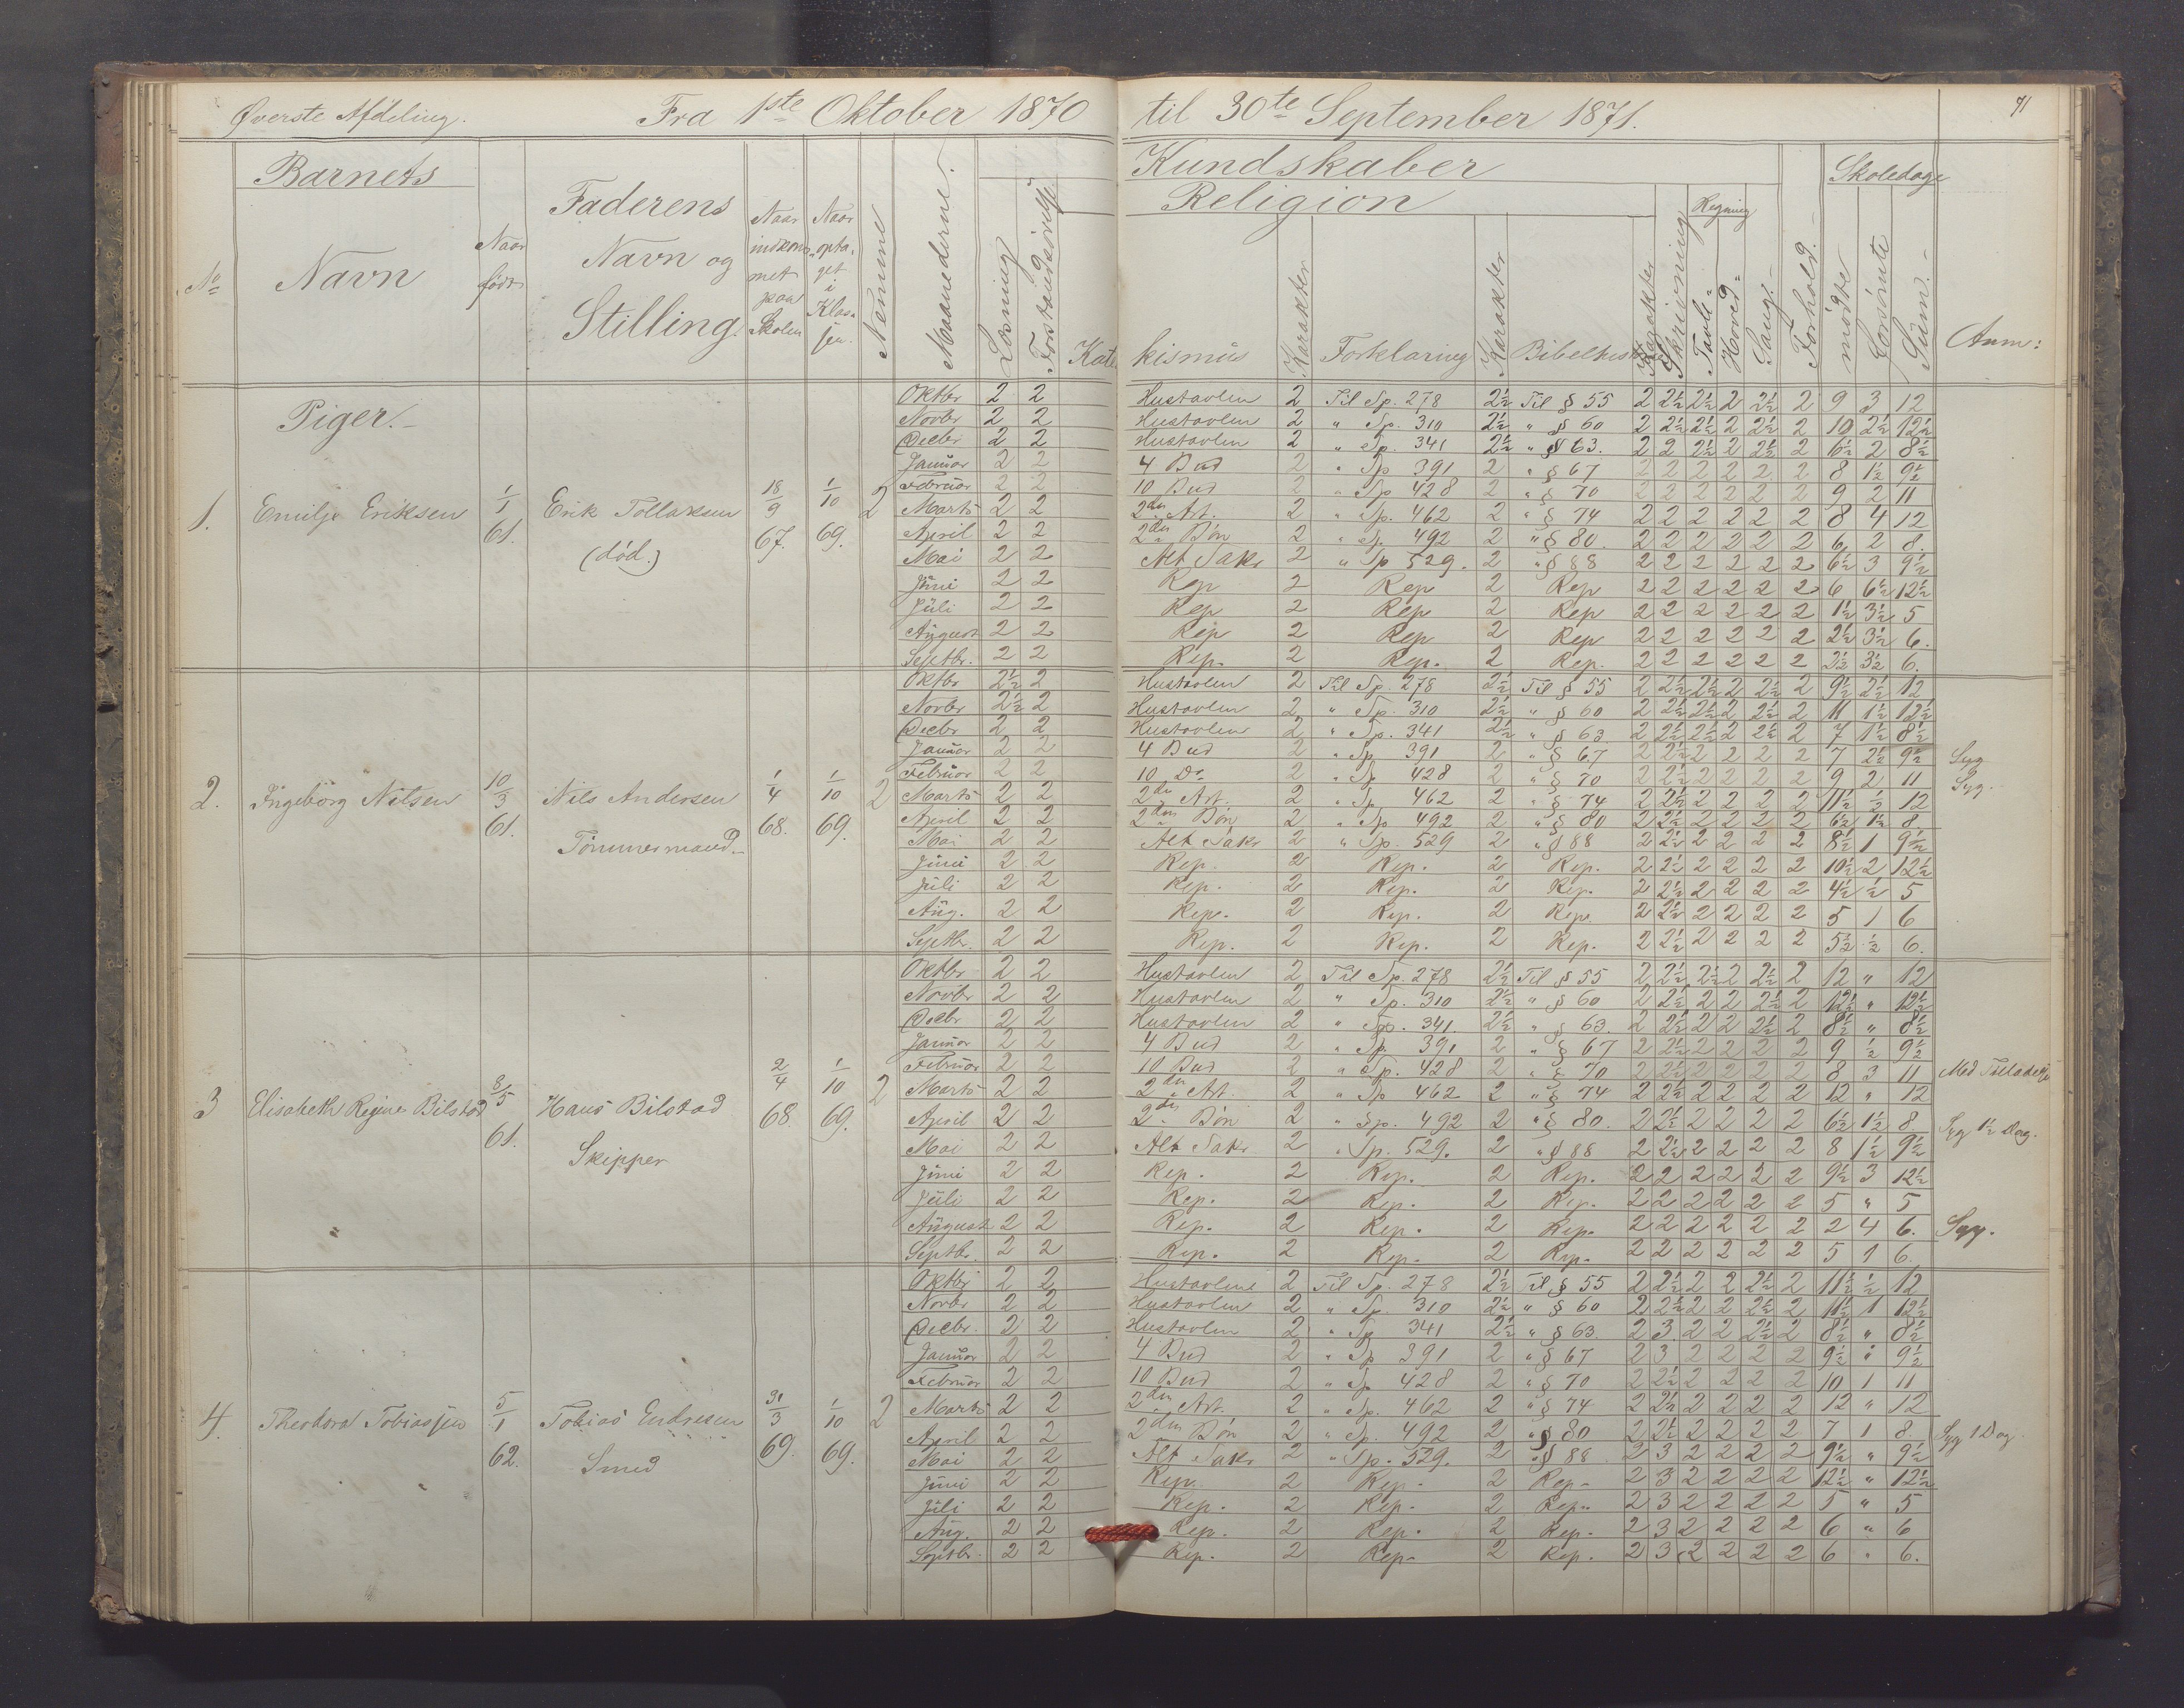 Øverste Afdeling. Fra 1ste Oktober 1870 til 30te September 1871. 71
Barnets Kundskaber Skoledage
Faderens Religion Regning
No Navn Naar født Navn og Stilling. Naar indkommet paa Skolen Naar optaget i Klassen. Nemme Maanederne. Læsning Forstandsøvelse Katekismus Karakter Forklaring Karakter Bibelhist. Karakter Skrivning Tavle= Hoved= Sang. Forhold. mødte Forsømte Sum. Anm:
Piger.
1. Emilje Eriksen 1/1 61. Erik Tollaksen (død.) 18/9 67. 1/10 69. 2
Oktbr 2 2 Hustavlen 2 Til Sp. 278 2½ Til § 55 2 2½ 2½ 2 2½ 2 9 3 12
Novbr 2 2 Hustavlen 2 " Sp. 310 2½ " § 60 2 2½ 2½ 2 2½ 2 10 2½ 12½
Decbr 2 2 Hustavlen 2 " Sp. 341 2½ " § 63. 2 2 2½ 2 2½ 2 6½ 2 8½
Januar 2 2 4 Bud 2 " Sp 391 2 " § 67 2 2 2 2 2 2 8 1½ 9½
Februar 2 2 10 Bud 2 " Sp. 428 2 " § 70 2 2 2 2 2 2 9 2 11
Marts 2 2 2den Art. 2 " Sp. 462 2 " § 74 2 2 2 2 2 2 8 4 12
April 2 2 2den Bøn 2 " Sp. 492 2 " § 80. 2 2 2 2 2 2 6 2 8.
Mai 2 2 Alt Sakr 2 " Sp 529. 2 " § 88 2 2 2 2 2 2 6½ 3 9½
Juni 2 2 Rep 2 Rep 2 Rep 2 2 2 2 2 2 6 6½ 12½
Juli 2 2 Rep 2 Rep 2 Rep 2 2 2 2 2 2 1½ 3½ 5
August 2 2 Rep 2 Rep 2 Rep 2 2 2 2 2 2 2½ 3½ 6.
Septbr. 2 2 Rep. 2 Rep. 2 Rep. 2 2 2 2 2 2 2½ 3½ 6.
2. Ingeborg Nilsen 10/3 61. Nils Andersen Tømmermand. 1/4 68. 1/10 69. 2
Oktbr 2½ 2 Hustavlen 2 Til Sp. 278 2½ Til § 55 2 2½ 2½ 2 2½ 2 9½ 2½ 12
Novbr 2½ 2 Hustavlen 2 " Sp. 310 2½ " § 60 2 2½ 2½ 2 2½ 2 11 1½ 12½
Decbr 2 2 Hustavlen 2 " Sp. 341 2½ " § 63 2 2½ 2½ 2 2½ 2 7 1½ 8½
Januar 2 2 4 Bud 2 " Sp 391 2 " § 67 2 2½ 2 2 2 2 7 2½ 9½ Syg
Februar 2 2 10 Do 2 " Sp 428 2 " § 70 2 2½ 2 2 2 2 9 2 11 Syg.
Marts 2 2 2den Art. 2 " Sp. 462 2 " § 74 2 2½ 2 2 2 2 11½ ½ 12
April 2 2 2den Bøn 2 " Sp. 492 2 " § 80 2 2½ 2 2 2 2 6½ 1½ 8
Mai 2 2 Alt Sakr 2 " Sp. 529 2 " § 88 2 2½ 2 2 2 2 8½ 1 9½
Juni 2 2 Rep. 2 Rep. 2 Rep. 2 2½ 2 2 2 2 10½ 2 12½
Juli 2 2 Rep. 2 Rep. 2 Rep. 2 2½ 2 2 2 2 4½ ½ 5
Aug. 2 2 Rep. 2 Rep. 2 Rep. 2 2½ 2 2 2 2 5 1 6
Septbr. 2 2 Rep. 2 Rep. 2 Rep. 2 2½ 2 2 2 2 5½ ½ 6.
3 Elisabeth Regine Bilstad 8/5 61. Hans Bilstad Skipper 2/4 68. 1/10 69. 2
Oktbr 2 2 Hustavlen 2 Til Sp. 278 2½ Til § 55 2 2½ 2½ 2 2½ 2 12 " 12
Novbr 2 2 Hustavlen 2 " Sp. 310 2½ " § 60 2 2½ 2 2 2½ 2 12½ " 12½
Decbr 2 2 Hustavlen 2 " Sp. 341. 2½ " § 63. 2 2½ 2 2 2½ 2 8½ " 8½
Januar 2 2 4 Bud 2 " Sp. 391 2 " § 67 2 2½ 2 2 2 2 9 ½ 9½
Februar 2 2 10 Bud 2 " Sp. 428 2 " § 70 2 2½ 2 2 2 2 8 3 11 Med Tilladelse
Marts 2 2 2den Art. 2 " Sp 462 2 " § 74 2 2½ 2 2 2 2 12 " 12
April 2 2 2den Bøn 2 " Sp. 492 2 " § 80. 2 2½ 2 2 2 2 6½ 1½ 8. Syg 1½ Dag.
Mai 2 2 Alt Sakr 2 " Sp. 529. 2 " § 88 2 2½ 2 2 2 2 8 1½ 9½
Juni 2 2 Rep. 2 Rep. 2 Rep. 2 2 2 2 2 2 9½ 3 12½
Juli 2 2 Rep. 2 Rep. 2 Rep. 2 2 2 2 2 2 5 " 5
August 2 2 Rep. 2 Rep. 2 Rep. 2 2 2 2 2 2 2 4 6. Syg.
Septbr. 2 2 Rep. 2 Rep. 2 Rep. 2 2 2 2 2 2 5 1 6.
4. Theodora Tobiassen 5/1 62. Tobias Endresen Smed 31/3 69. 1/10 69. 2
Oktbr 2 2 Hustavlen 2 Til Sp. 278 2½ Til § 55 2 2½ 2 2 2½ 2 11½ ½ 12
Novbr 2 2 Hustavlen 2 " Sp. 310 2½ " § 60 2 2½ 2 2 2½ 2 11½ 1 12½
Decbr. 2 2 Hustavlen 2 " Sp 341 2½ " § 63. 2 3. 2 2 2½ 2 8½ " 8½
Januar 2 2 4 Bud 2 " Sp 391 2 " § 67 2 3 2 2 2 2 9½ " 9½
Februar 2 2 10 Bud 2 " Sp 428 2 " § 70 2 2½ 2 2 2 2 10 1 11
Marts 2 2 2den Art. 2 " Sp. 462 2 " § 74 2 2½ 2 2 2 2 12 " 12
April 2 2 2den Bøn 2 " Sp. 492 2 " § 80 2 2½ 2 2 2 2 7 1 8. Syg 1 Dag.
Mai 2 2 Alt Sakr 2 " Sp. 529. 2 " § 88 2 3 2 2 2 2 9½ " 9½
Juni 2 2 Rep. 2 Rep. 2 Rep. 2 3 2 2 2 2 12½ " 12½
Juli 2 2 Rep. 2 Rep. 2 Rep. 2 3 2 2 2 2 5 " 5
Aug. 2 2 Rep. 2 Rep. 2 Rep. 2 3 2 2 2 2 6 " 6
Septbr. 2 2 Rep. 2 Rep. 2 Rep. 2 3 2 2 2 2 6 " 6.